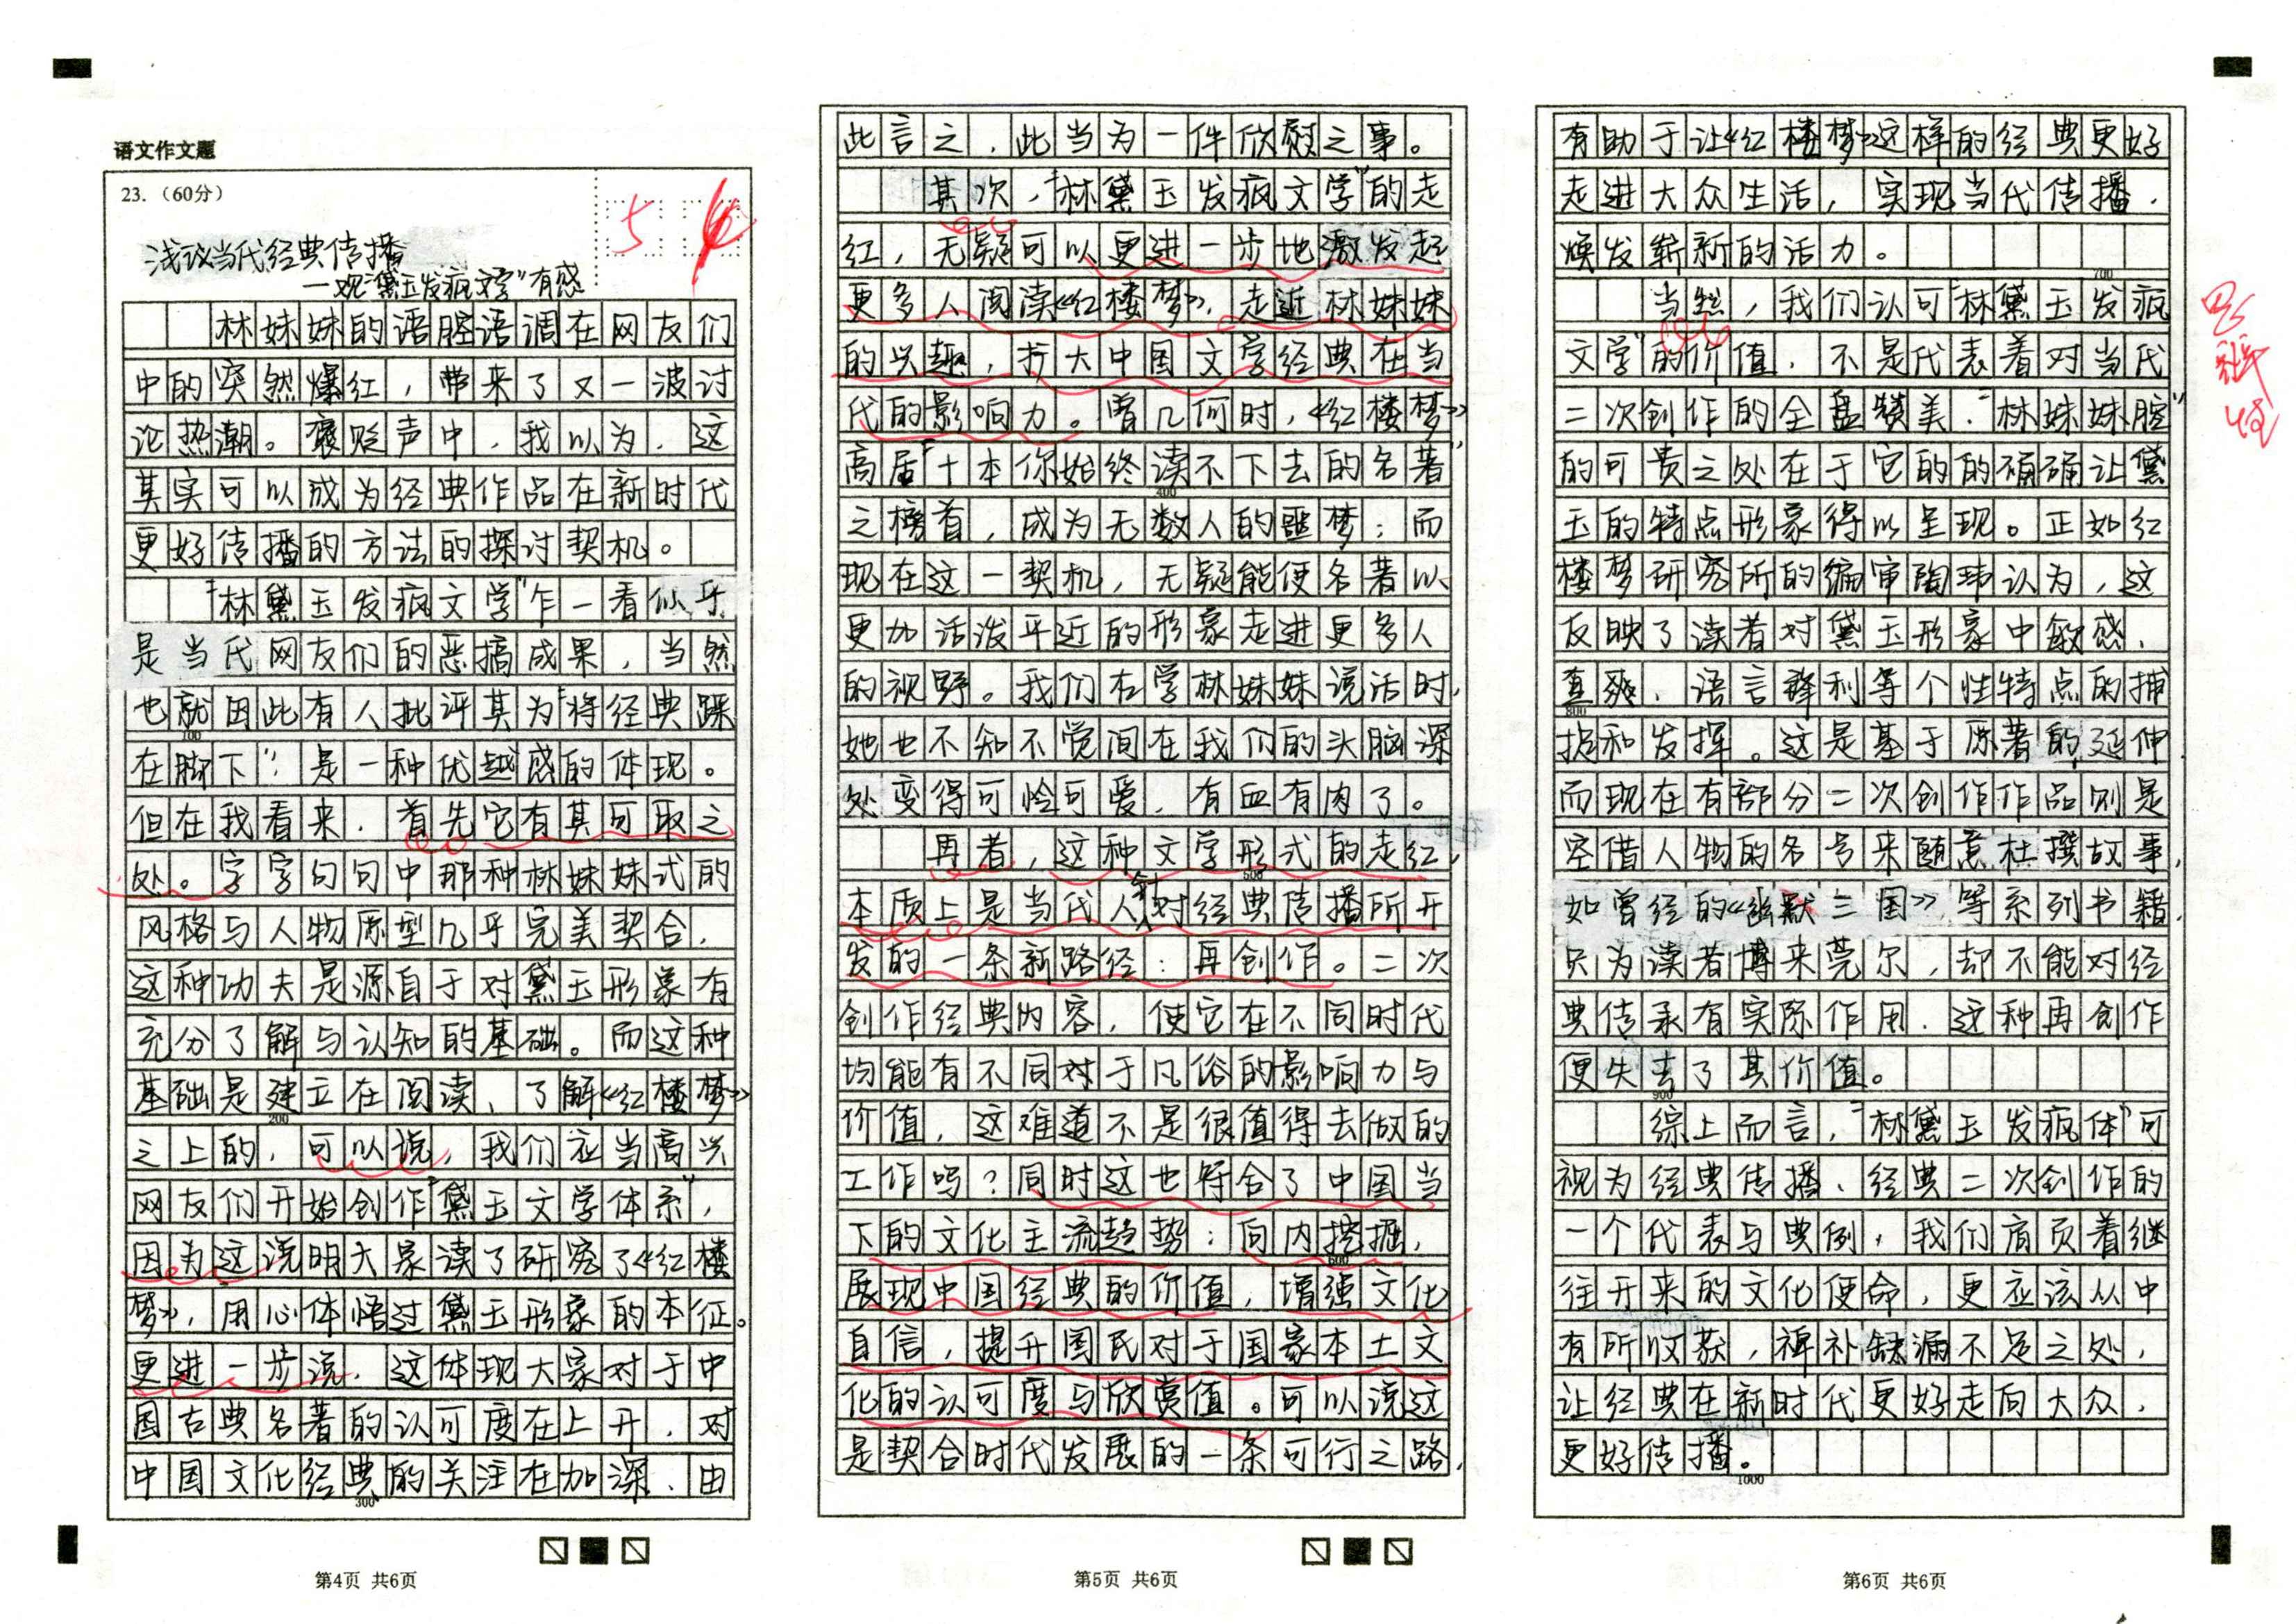 语文作文题
23.（60分）
5
浅议当代经典传播
——观“黛玉发疯文学”有感
林妹妹的语腔语调在网友们
中的突然爆红，带来了又一波讨
论热潮。褒贬声中，我以为，这
其实可以成为经典作品在新时代
更好传播的方法的探讨契机。
“林黛玉发疯文学”乍一看似乎
是当代网友们的恶搞成果，当然
也就因此有人批评其为“将经典踩
100
在脚下”，是一种优越感的体现。
但在我看来，首先它有其可取之
处。字字句句中那种林妹妹式的
风格与人物原型几乎完美契合，
这种功夫是源自于对黛玉形象有
充分了解与认知的基础。而这种
基础是建立在阅读、了解《红楼梦》
200
之上的，可以说，我们应当高兴
网友们开始创作“黛玉文学体系”，
因为这说明大家读了研究了《红楼
梦》，用心体悟过黛玉形象的本征。
更进一步说，这体现大家对于中
国古典名著的认可度在上升，对
中国文化经典的关注在加深，由
300
第4页 共6页
此言之，此当为一件欣慰之事。
其次，“林黛玉发疯文学”的走
红，无疑可以更进一步地激发起
更多人阅读《红楼梦》，走近林妹妹
的兴趣，扩大中国文学经典在当
代的影响力。曾几何时，《红楼梦》
高居“十本你始终读不下去的名著”
400
之榜首，成为无数人的噩梦；而
现在这一契机，无疑能使名著以
更加活泼平近的形象走进更多人
的视野。我们在学林妹妹说话时，
她也不知不觉间在我们的头脑深
处变得可怜可爱，有血有肉了。
再者，这种文学形式的走红，
500
本质上是当代人针对经典传播所开
发的一条新路径：再创作。二次
创作经典内容，使它在不同时代
均能有不同对于凡俗的影响力与
价值，这难道不是很值得去做的
工作吗？同时这也符合了中国当
下的文化主流趋势：向内挖掘，
600
展现中国经典的价值，增强文化
自信，提升国民对于国家本土文
化的认可度与欣赏值。可以说这
是契合时代发展的一条可行之路，
第5页 共6页
有助于让《红楼梦》这样的经典更好
走进大众生活，实现当代传播，
焕发崭新的活力。
700
当然，我们认可“林黛玉发疯
文学”的价值，不是代表着对当代
二次创作的全盘赞美，“林妹妹腔”
的可贵之处在于它的的确确让黛
玉的特点形象得以呈现。正如红
楼梦研究所的编审陶玮认为，这
反映了读者对黛玉形象中敏感、
直爽、语言锋利等个性特点的捕
800
捉和发挥。这是基于原著的延伸，
而现在有部分二次创作作品则是
空借人物的名号来随意杜撰故事，
如曾经的《幽默三国》等系列书籍，
只为读者博来莞尔，却不能对经
典传承有实际作用，这种再创作
便失去了其价值。
900
综上而言，“林黛玉发疯体”可
视为经典传播、经典二次创作的
一个代表与典例，我们肩负着继
往开来的文化使命，更应该从中
有所收获，裨补缺漏不足之处，
让经典在新时代更好走向大众，
更好传播。
1000
第6页 共6页